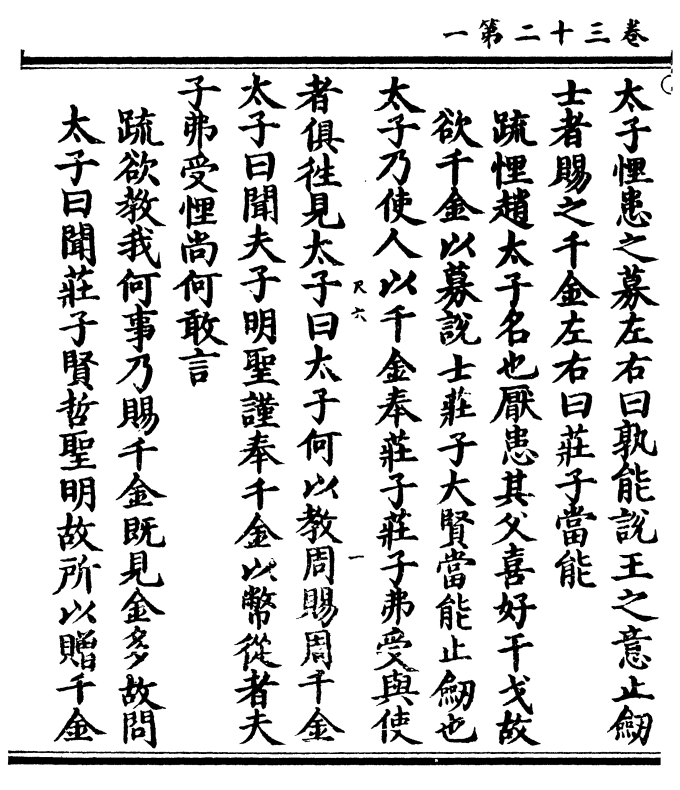 卷三十二第一
太子悝患之募左右曰孰能說王之意止劒
士者賜之千金左右曰莊子當能
疏悝趙太子名也厭患其父喜好干戈故
欲千金以募說士莊子大賢當能止劒也
太子乃使人以千金奉莊子莊子弗受與使
尺六
一
者俱徃見太子曰太子何以教周賜周千金
太子曰聞夫子明聖謹奉千金以幣從者夫
子弗受悝尚何敢言
疏欲教我何事乃賜千金既見金多故問
太子曰聞莊子賢哲聖明故所以贈千金